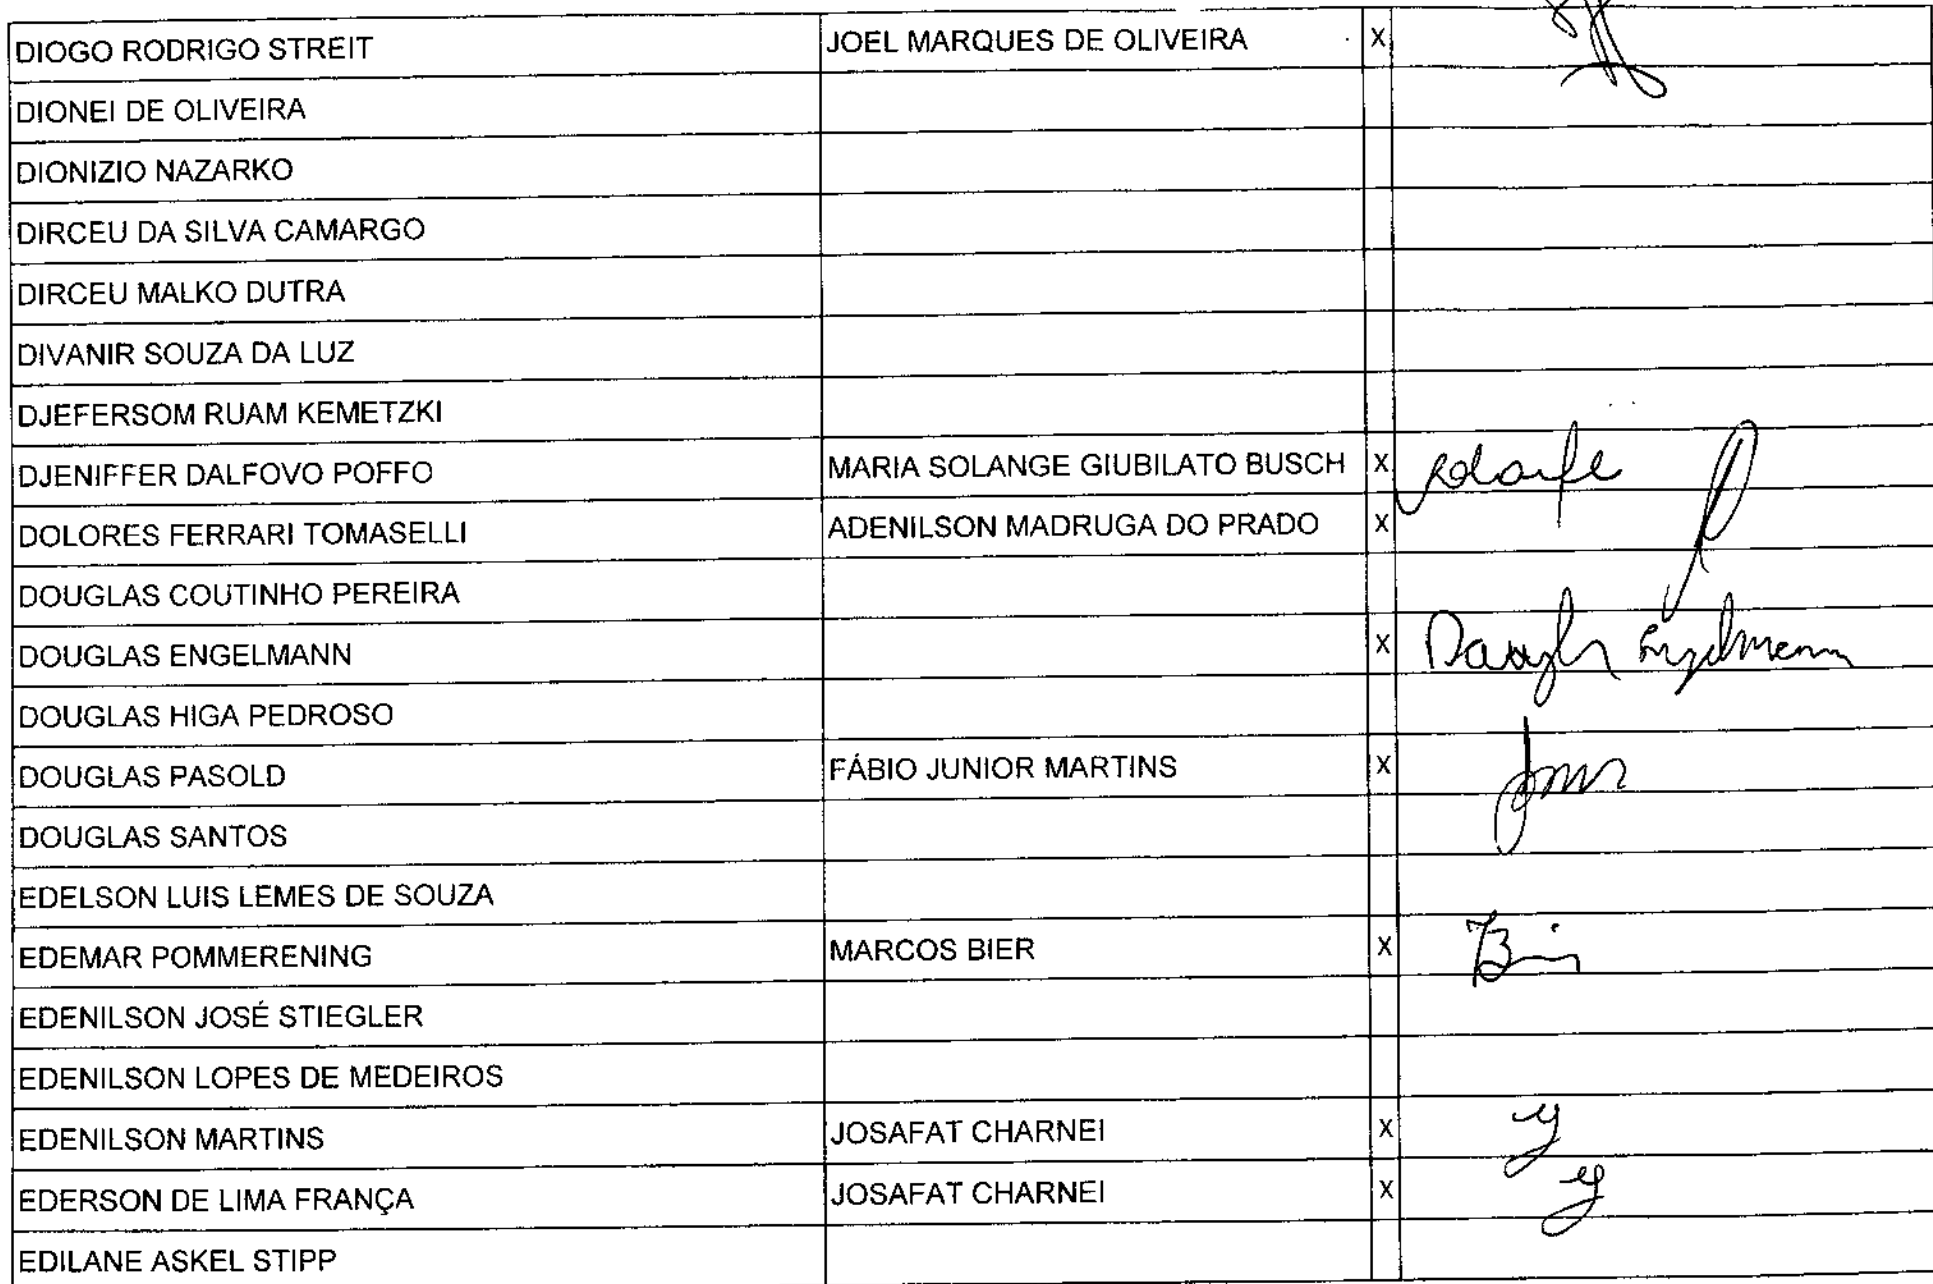 DIOGO RODRIGO STREIT JOEL MARQUES DE OLIVEIRA X
DIONEI DE OLIVEIRA
DIONIZIO NAZARKO
DIRCEU DA SILVA CAMARGO
DIRCEU MALKO DUTRA
DIVANIR SOUZA DA LUZ
DJEFERSOM RUAM KEMETZKI
DJENIFFER DALFOVO POFFO MARIA SOLANGE GIUBILATO BUSCH X
DOLORES FERRARI TOMASELLI ADENILSON MADRUGA DO PRADO X
DOUGLAS COUTINHO PEREIRA
DOUGLAS ENGELMANN X Douglas Engelmann
DOUGLAS HIGA PEDROSO
DOUGLAS PASOLD FÁBIO JUNIOR MARTINS X
DOUGLAS SANTOS
EDELSON LUIS LEMES DE SOUZA
EDEMAR POMMERENING MARCOS BIER X
EDENILSON JOSÉ STIEGLER
EDENILSON LOPES DE MEDEIROS
EDENILSON MARTINS JOSAFAT CHARNEI X
EDERSON DE LIMA FRANÇA JOSAFAT CHARNEI X
EDILANE ASKEL STIPP